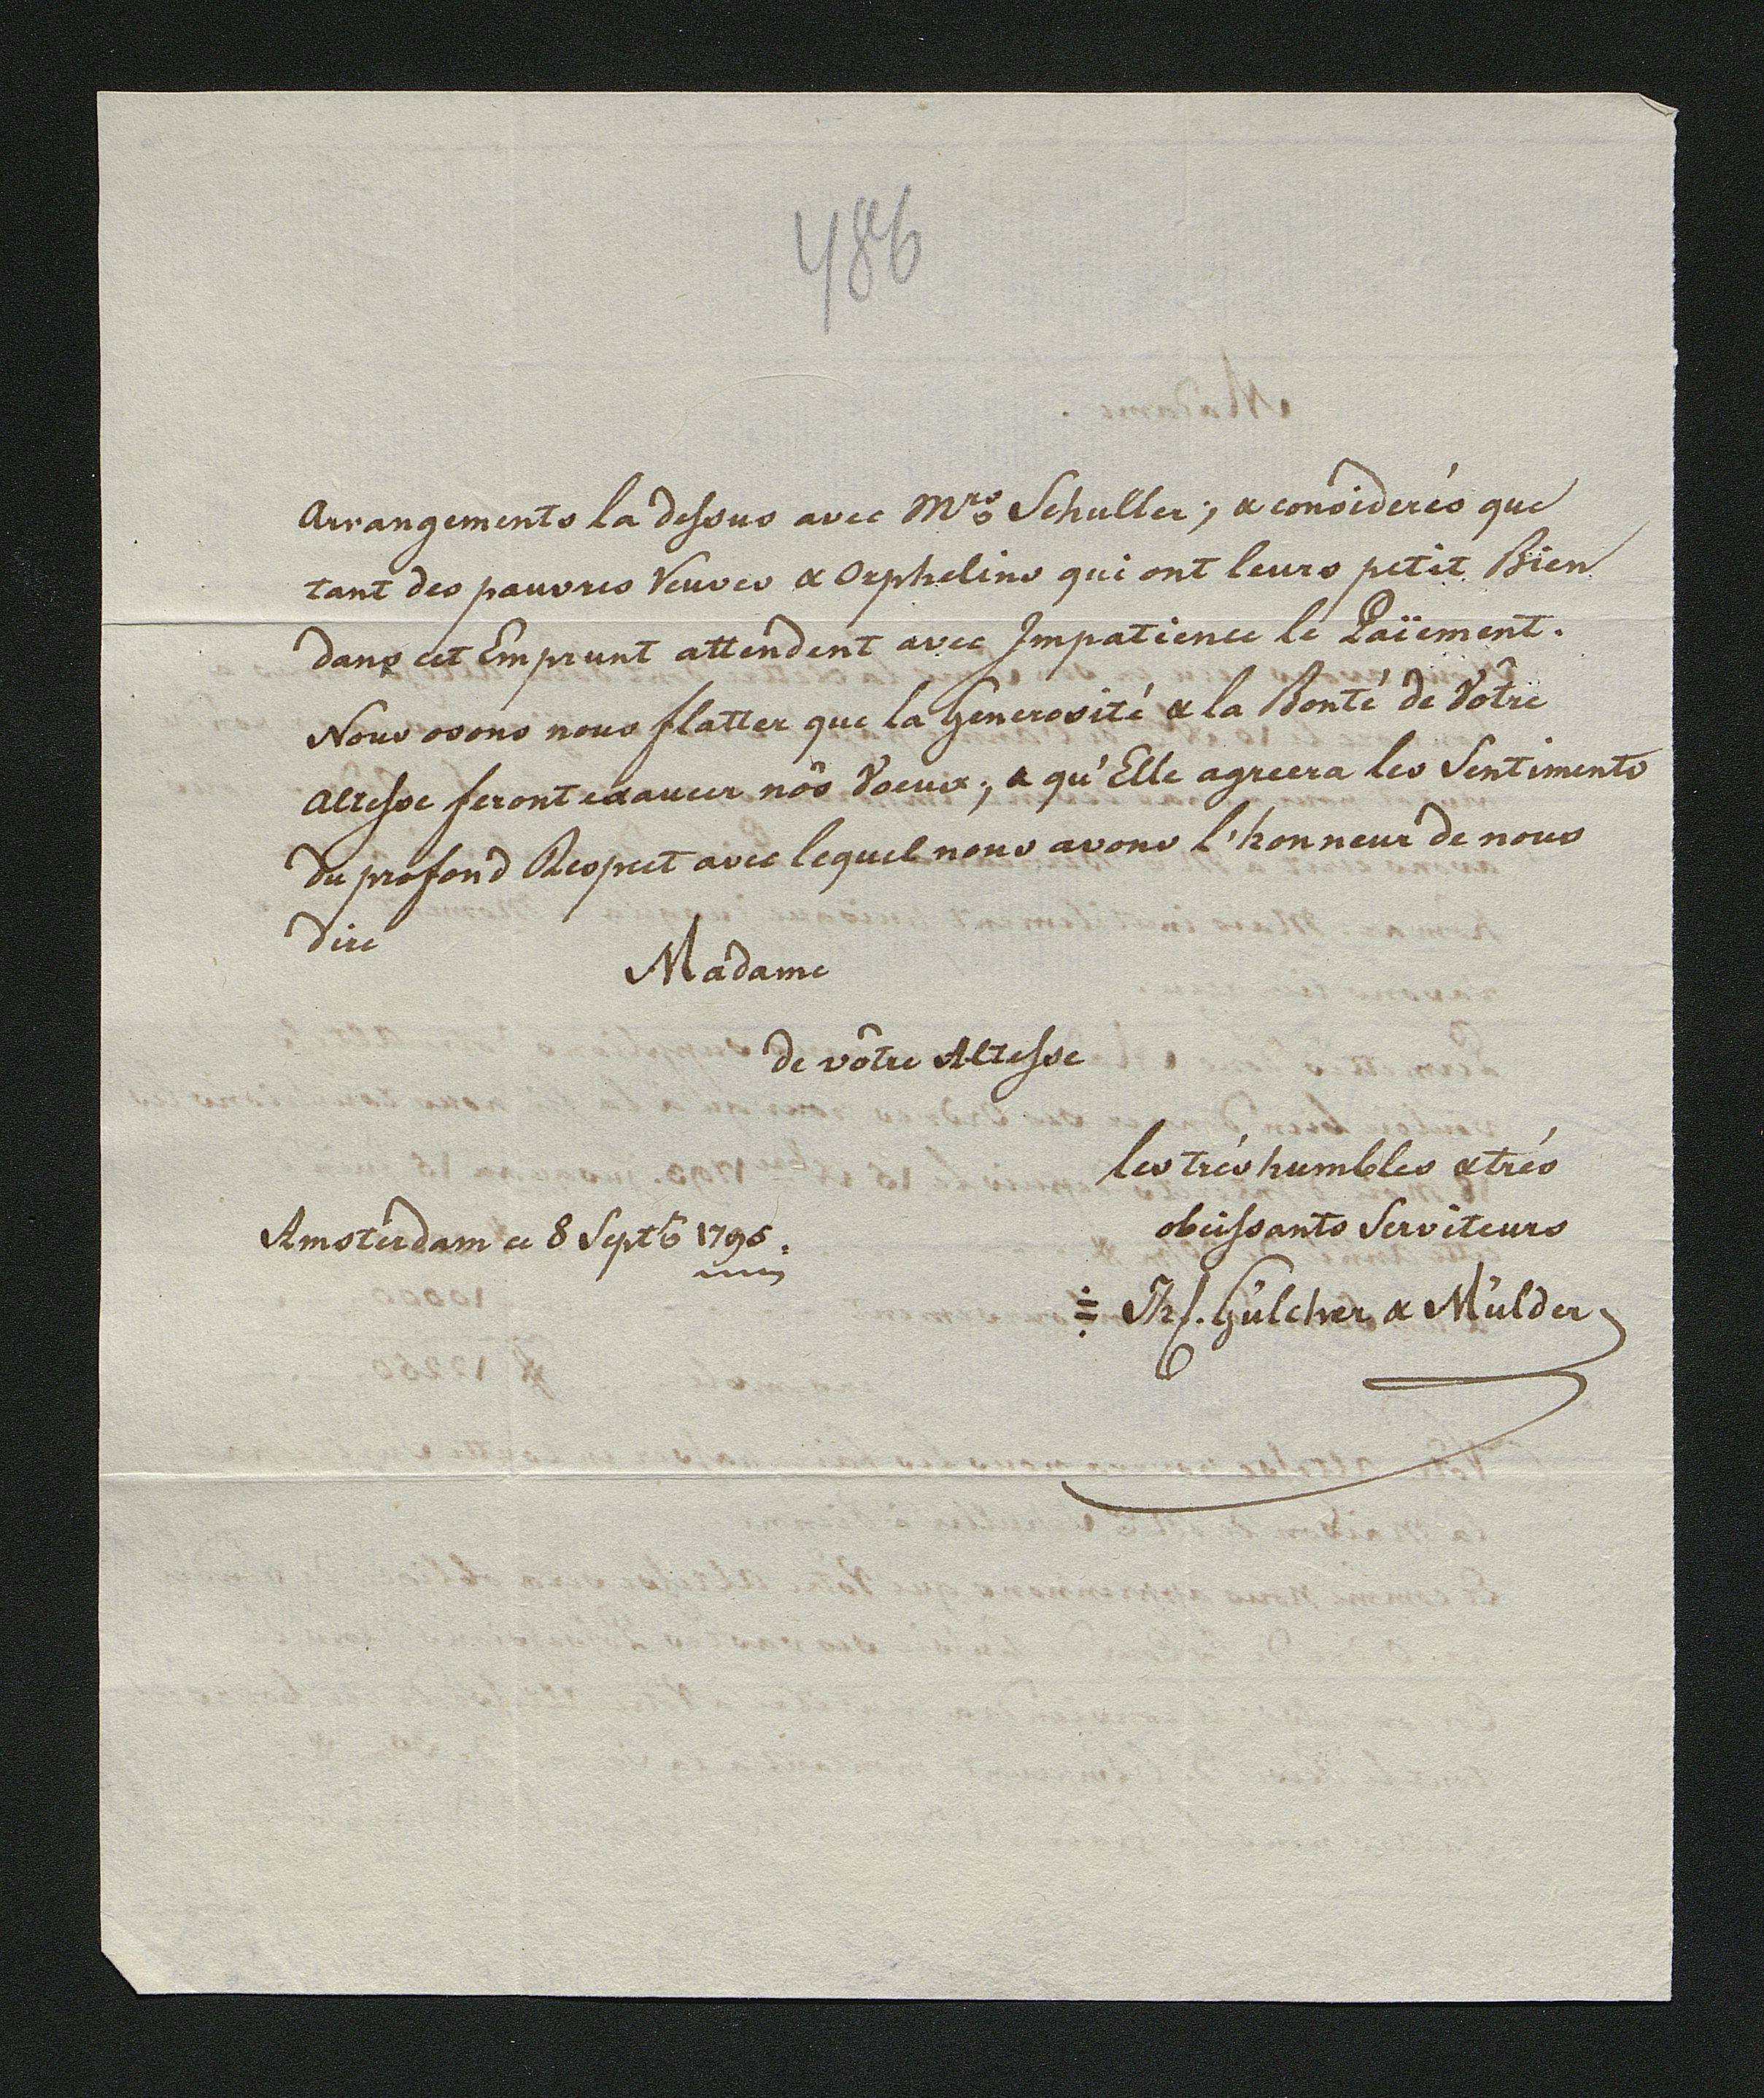 486
Arrangements la dessus avec Mrs Schuller; & considerés que
tant des pauvres Veuves & Orphelins qui ont leurs petit Bien
dans cet Emprunt attendent avec Impatience le Païement.
Nous osons nous flatter que la Generosité & la Bonté de Vôtre
Altesse feront exaucer nôs Voeux; & qu'Elle agreera les Sentiments
du profond Respect avec lequel nous avons l'honneur de nous
dire
Madame
de vôtre Altesse
les trés humbles & trés
obeissants Serviteurs
Amsterdam ce 8 Septb
Gülcher & Mülder